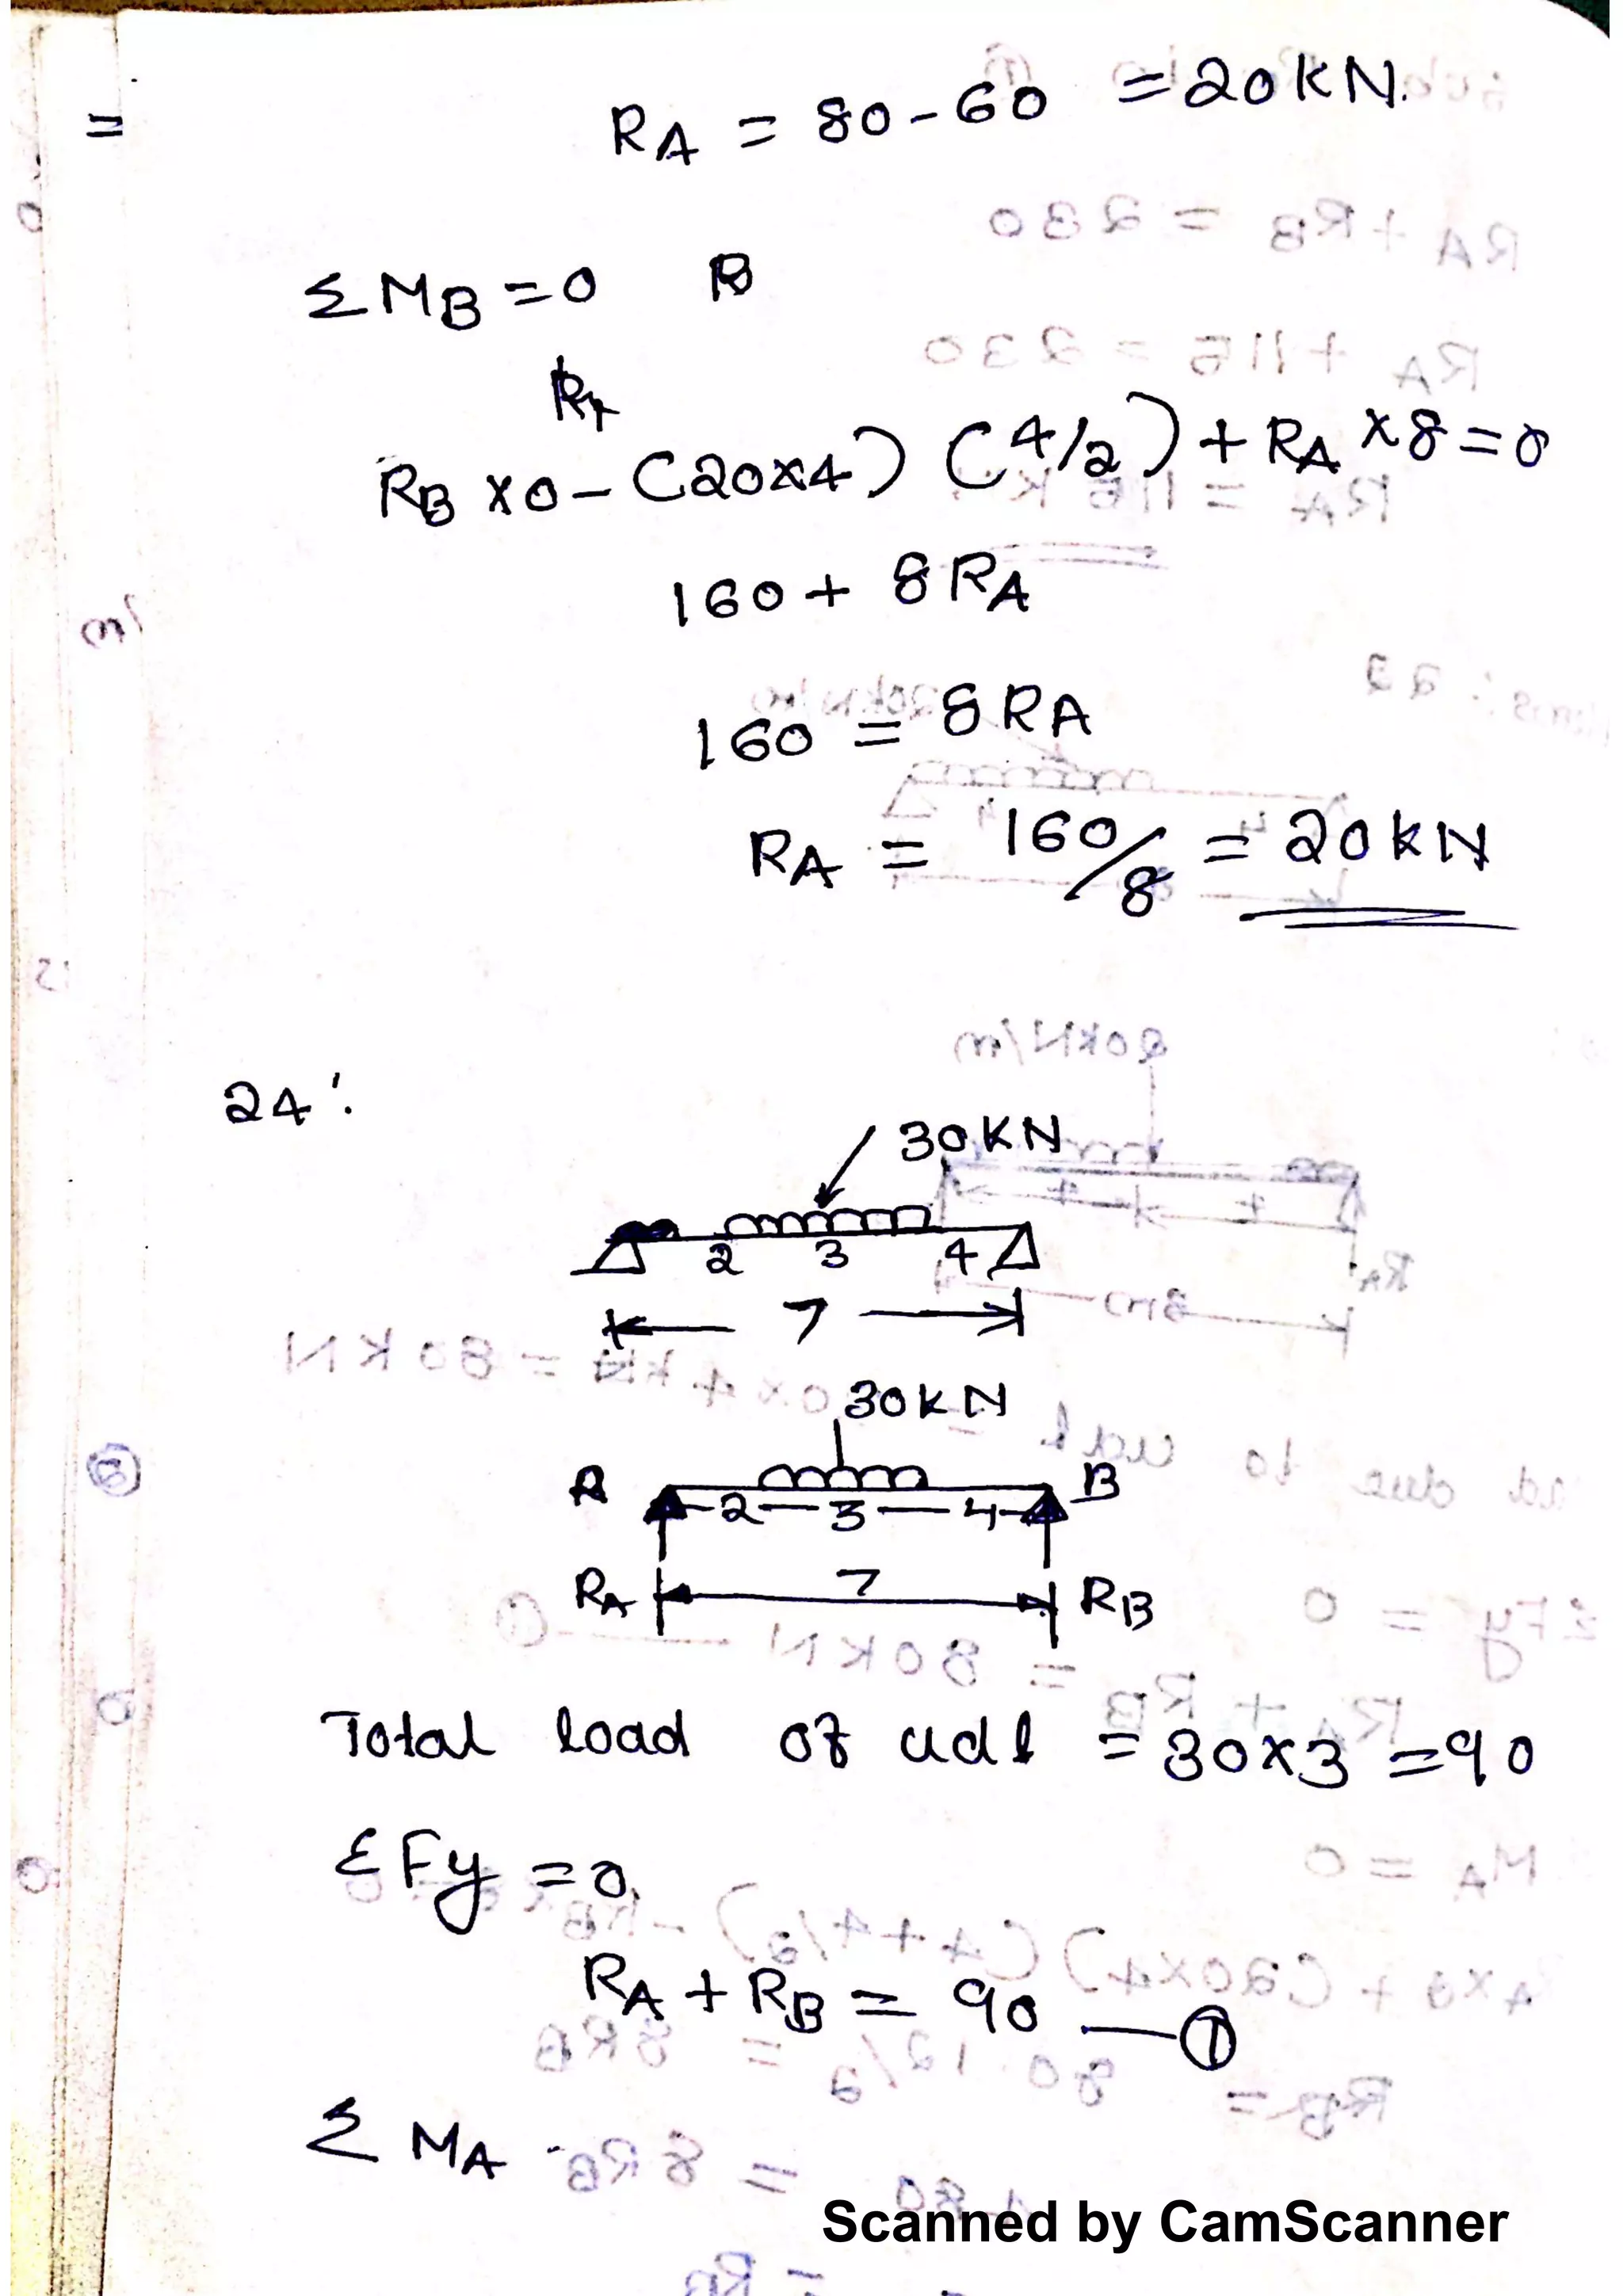 = RA = 80-60 = 20KN.
ΣMB=0 B
RA
RB x0-(20x4)(4/2)+RA x8=0
160+ 8RA
160 = 8RA
RA = 160/8 = 20kN
24:
30KN
2 3 4
7
30KN
A B
2 3 4
RA 7 RB
Total load of udl = 30x3 =90
ΣFy =0
RA+RB = 90 —①
Σ MA
Scanned by CamScanner